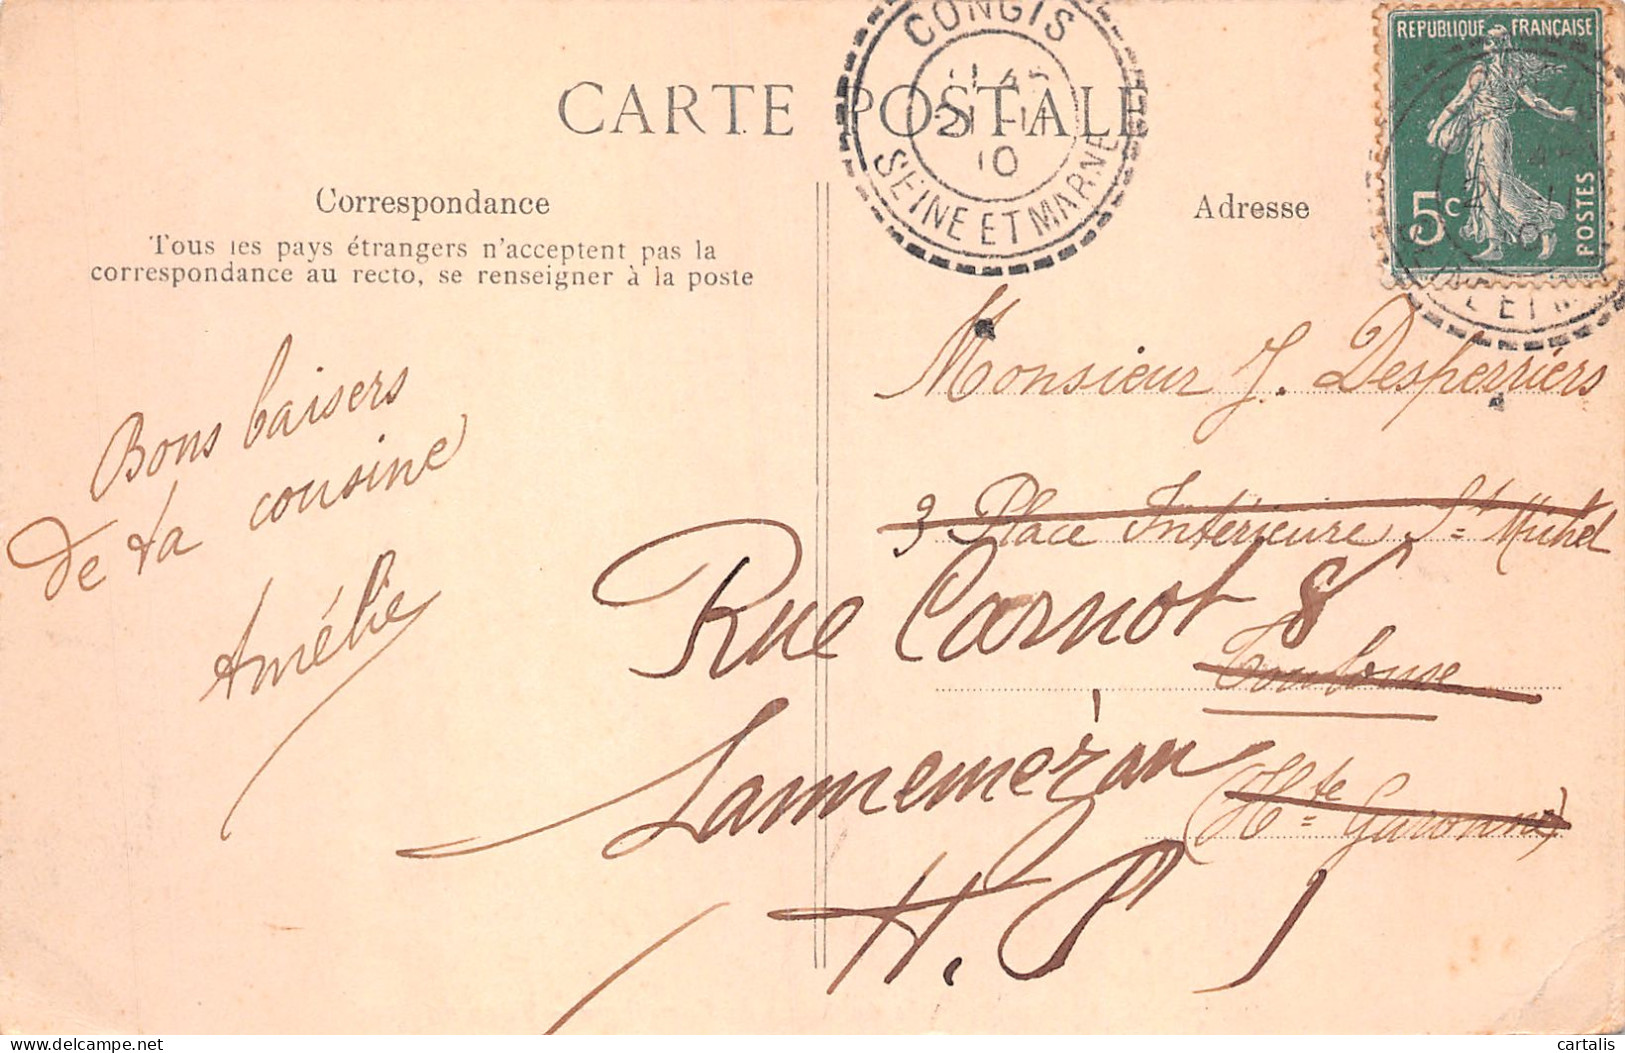 CARTE POSTALE
CONGIS
21 -11
10
SEINE ET MARNE
REPUBLIQUE FRANÇAISE
5c
POSTES
Correspondance
Tous les pays étrangers n'acceptent pas la
correspondance au recto, se renseigner à la poste
Adresse
Bons baisers
de ta cousine
Amélie
Monsieur J. Desperriers
3 Place Intérieure St Michel
Toulouse
(Hte Garonne)
Rue Carnot 8
Lannemézan
H. P
delcampe.net
cartalis